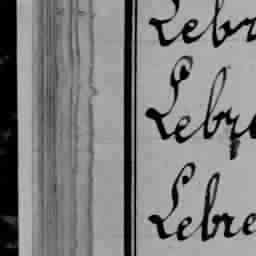 Lebr
Lebr
Lebre